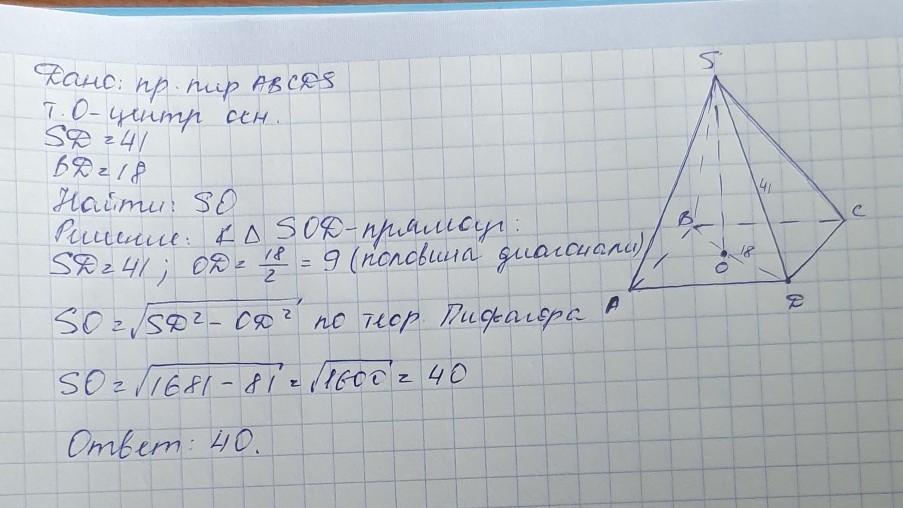 Дано: пр. пир ABCDS
т. О-центр осн.
SD = 41
BD = 18
Найти: SO
Решение: ∠ Δ SOD-прямоуг:
SD = 41; OD = 18/2 = 9 (половина диагонали)
SO = √SD² - OD² по теор. Пифагора
SO = √1681 - 81 = √1600 = 40
Ответ: 40.
S
41
B
C
18
O
A
D